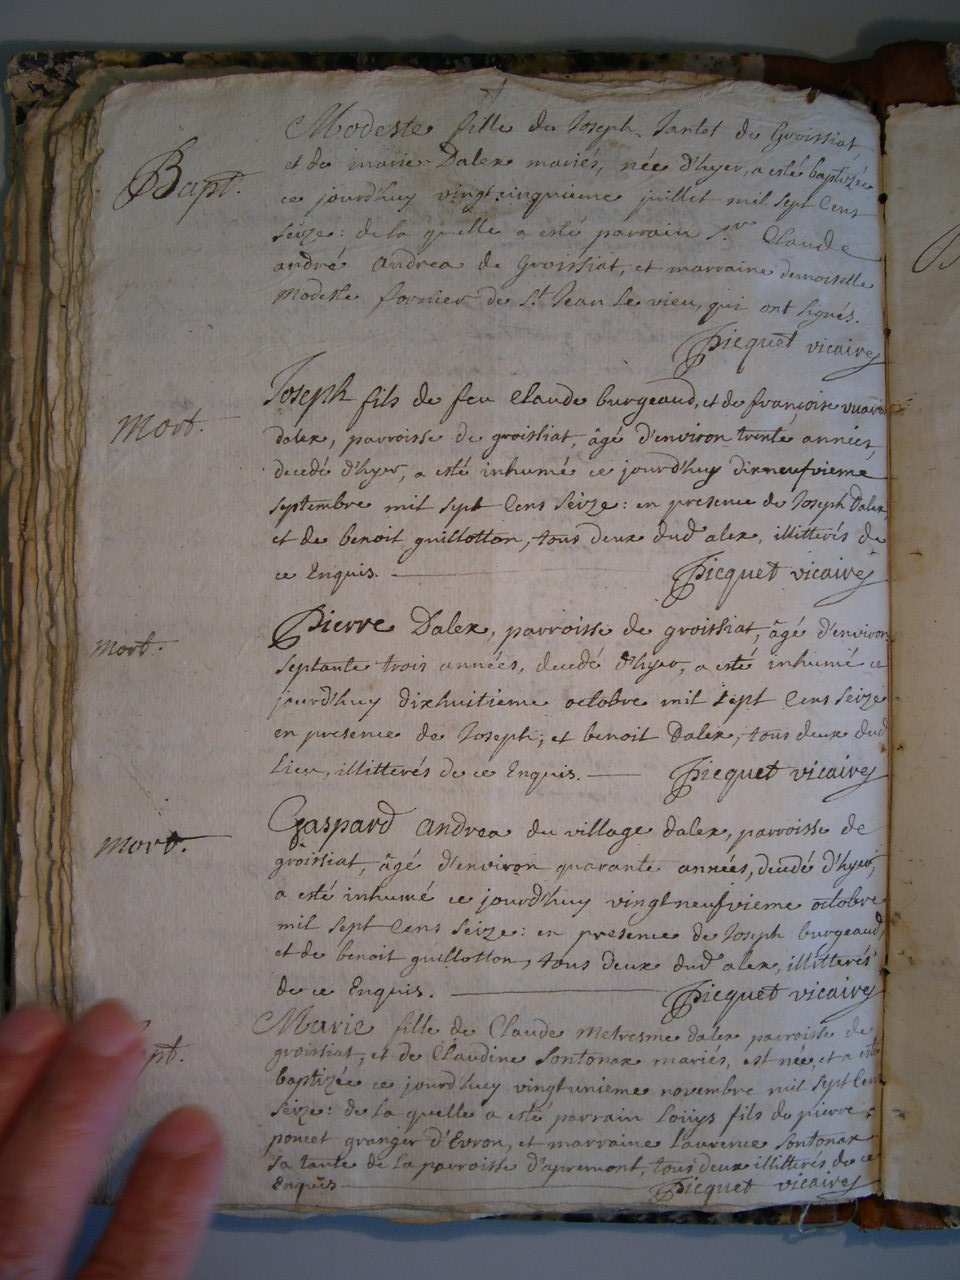 Bapt.
Modeste fille de Joseph Jantet de Groissiat
et de marier Dalex mariés, née d'hyer, a esté baptizée
ce jourd'huy vingt cinquieme juillet mil sept Cens
seize: de la quelle a esté parrain Sr Claude
andré Andrea de Groissiat, et marraine demoiselle
Modeste fornier de St Jean le vieu, qui ont signés.
Picquet vicaire
Mort.
Joseph fils de feu Claude burgeaud, et de françoise
dalex, parroisse de groissiat, âgé d'environ trente années,
decedé d'hyer, a esté inhumé ce jourd'huy dixneufvieme
septembre mil sept Cens seize: en presence de Joseph Dalex,
et de benoit guillotton, tous deux dud alex, illitterés de
ce Enquis. Picquet vicaire
Mort.
Pierre Dalex, parroisse de groissiat, âgé d'environ
septante trois années, decedé d'hyer, a esté inhumé ce
jourd'huy dixhuitieme octobre mil sept Cens seize
en presence de Joseph, et benoit Dalex, tous deux dud
lieu, illitterés de ce Enquis. Picquet vicaire
Mort.
Gaspard Andrea du village dalex, parroisse de
groissiat, âgé d'environ quarante années, decedé d'hyer,
a esté inhumé ce jourd'huy vingtneufvieme octobre
mil sept Cens seize: en presence de Joseph burgeaud,
et de benoit guillotton, tous deux dud alex, illitterés
de ce Enquis. Picquet vicaire
pt.
Marie fille de Claude Metresme dalex parroisse de
groissiat, et de Claudine Sontonax mariés, est née, et a esté
baptizée ce jourd'huy vingtunieme novembre mil sept Cens
seize: de la quelle a esté parrain Loüys fils de pierre
poncet granger d'Evron, et marraine Laurence Sontonax
sa tante de la parroisse d'apremont, tous deux illitterés de ce
Enquis Picquet vicaire